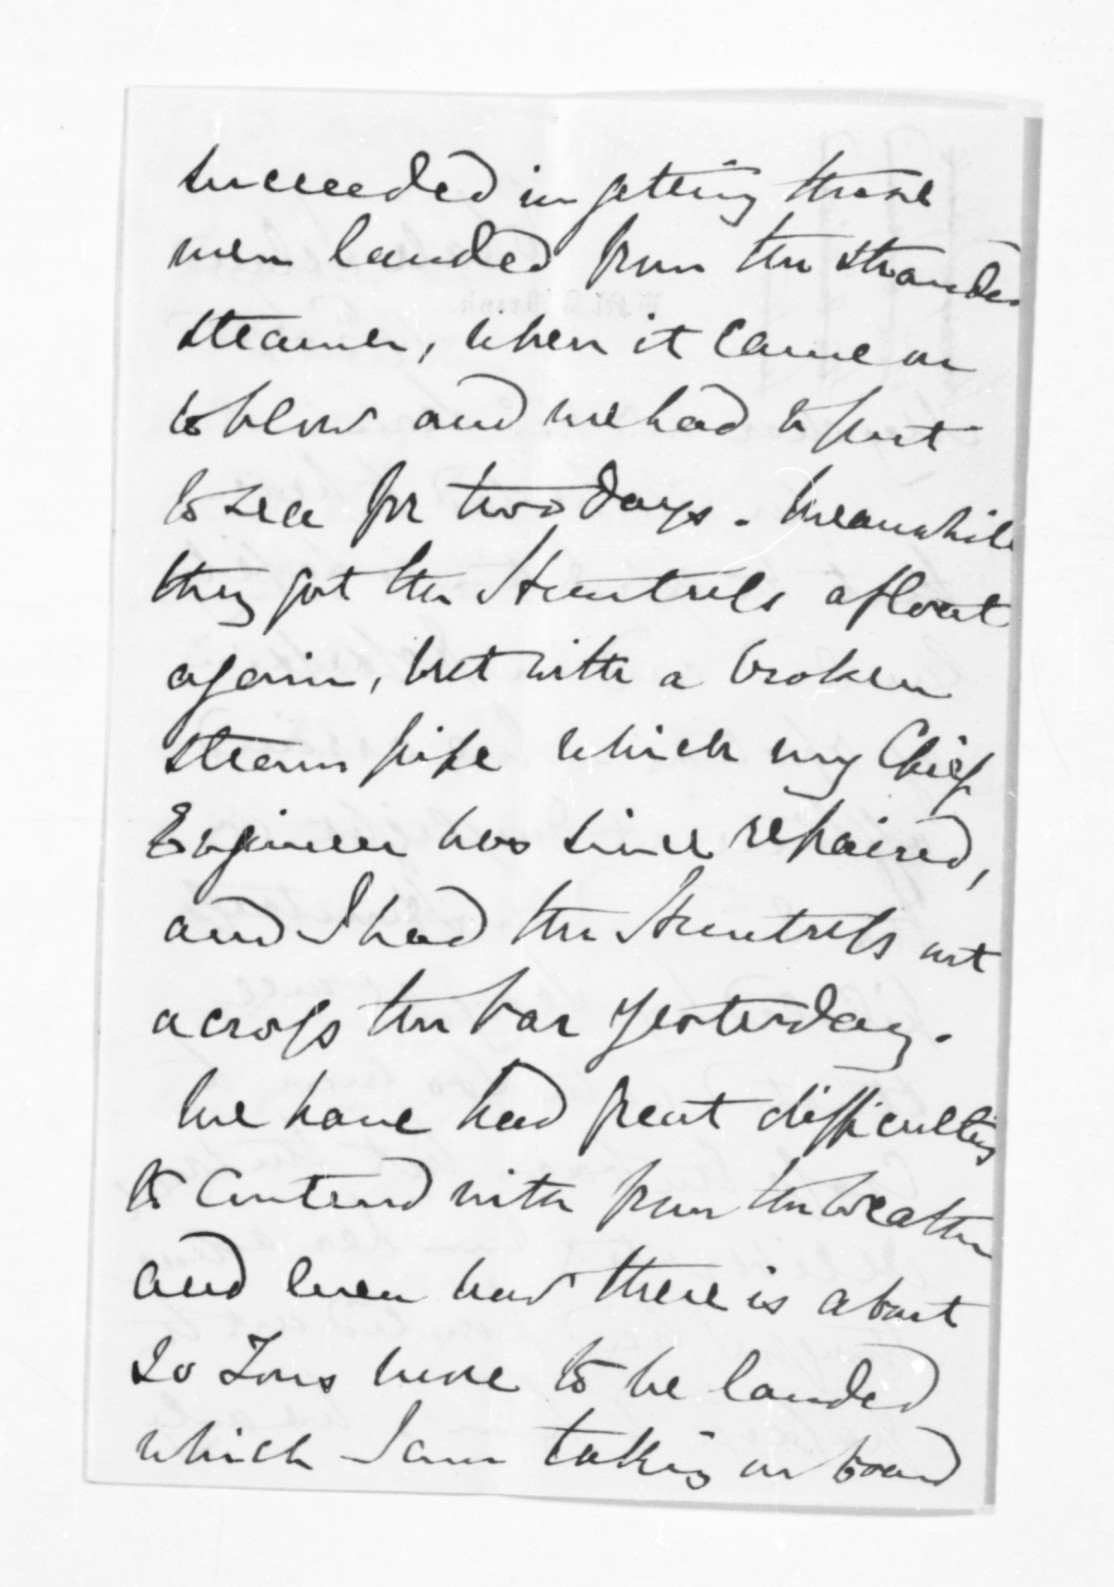 succeeded in getting those
men landed from the stranded
steamer, when it came on
to blow and we had to put
to sea for two days. Meanwhile
they got the Huntress afloat
again, but with a broken
steam pipe which my Chief
Engineer has since repaired,
and I had the Huntress out
across the bar yesterday.
We have had great difficulties
to contend with from the weather
and even now there is about
20 Tons more to be landed
which I am taking on board